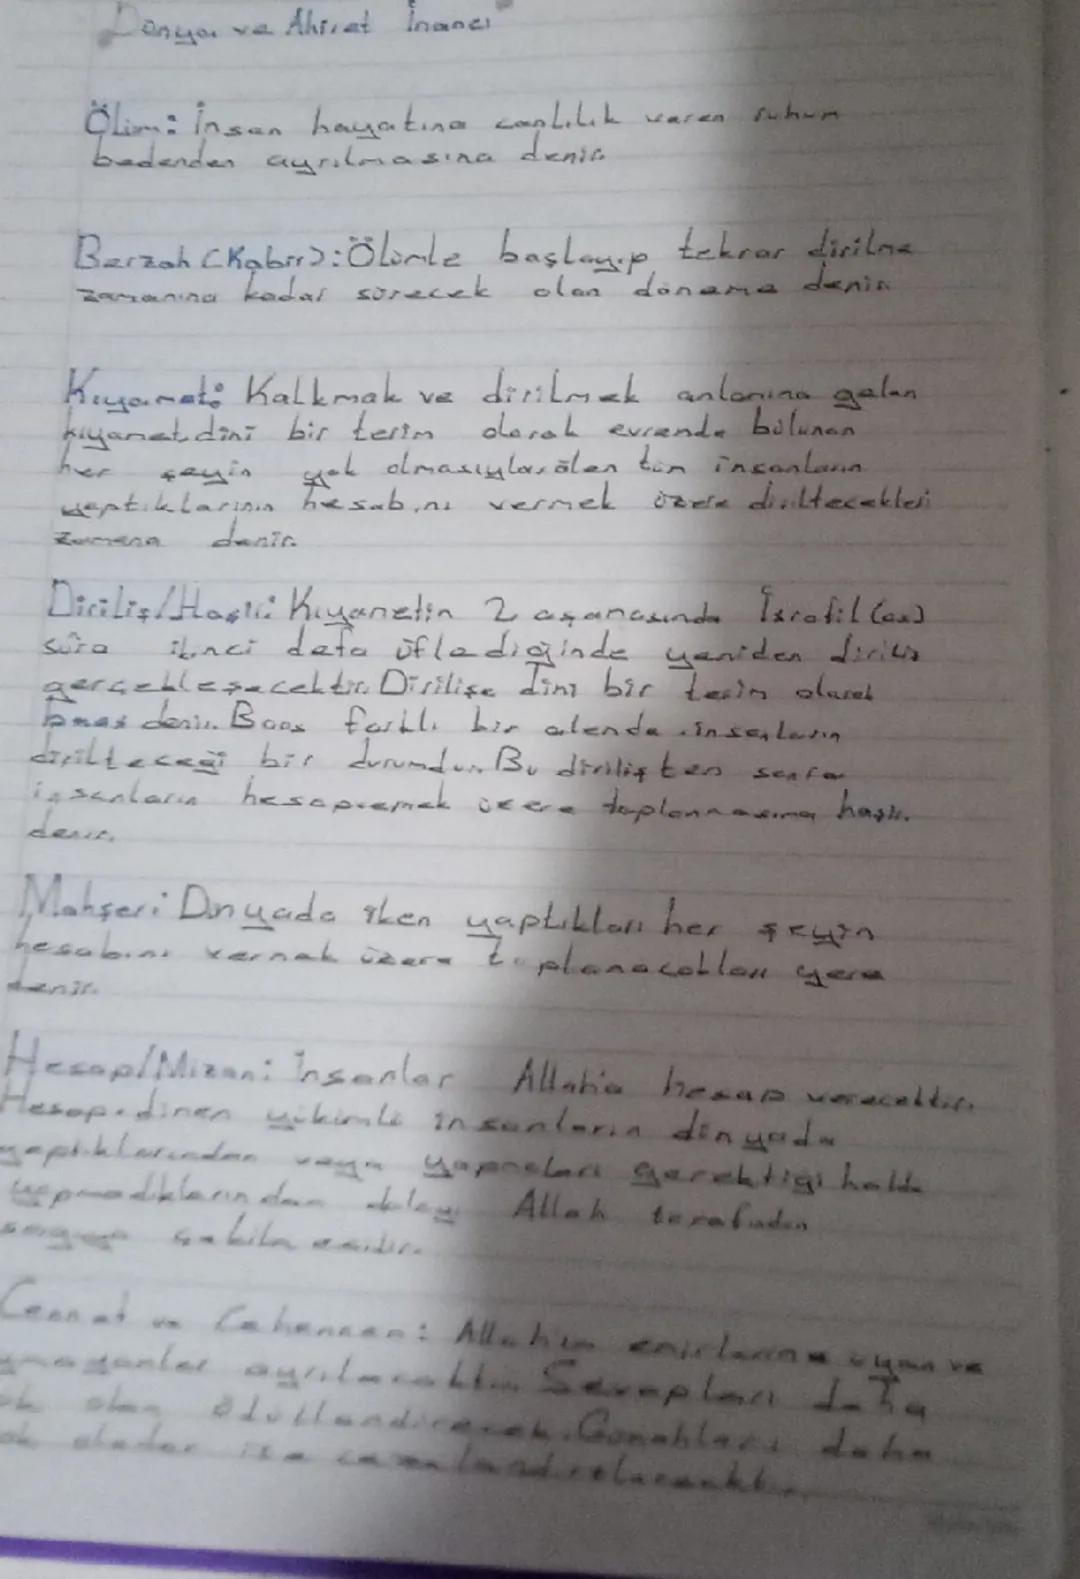 Dünya ve Ahiret İnancı
Ölüm: İnsan hayatına canlılık veren ruhun
bedenden ayrılmasına denir.
Berzah (Kabir): Ölümle başlayıp tekrar dirilme
zamanına kadar sürecek olan döneme denir.
Kıyamet: Kalkmak ve dirilmek anlamına gelen
kıyamet, dini bir terim olarak evrende bulunan
her şeyin yok olmasıyla, ölen tüm insanların
yaptıklarının hesabını vermek üzere diriltecekleri
zamana denir.
Diriliş/Haşir: Kıyametin 2 aşamasında İsrafil (as)
sûra ikinci defa üflediğinde yeniden diriliş
gerçekleşecektir. Dirilişe dini bir terim olarak
baas denir. Baas farklı bir alemde insanların
dirilteceği bir durumdur. Bu dirilişten sonra
insanların hesap vermek üzere toplanmasına haşir
denir.
Mahşer: Dünyada iken yaptıkları her şeyin
hesabını vermek üzere toplanacakları yere
denir.
Hesap/Mizan: İnsanlar Allah'a hesap verecektir.
Hesap, dinen insanların dünyada
yaptıklarından veya yapmaları gerektiği halde
yapmadıklarından dolayı Allah tarafından
sorguya çekilmesidir.
Cennet ve Cehennem: Allahın emirlerine uyan ve
uymayanlar ayrılacaktır. Sevapları daha
çok olan ödüllendirecek. Günahları daha
çok olanlar ise cezalandırılacaktır.